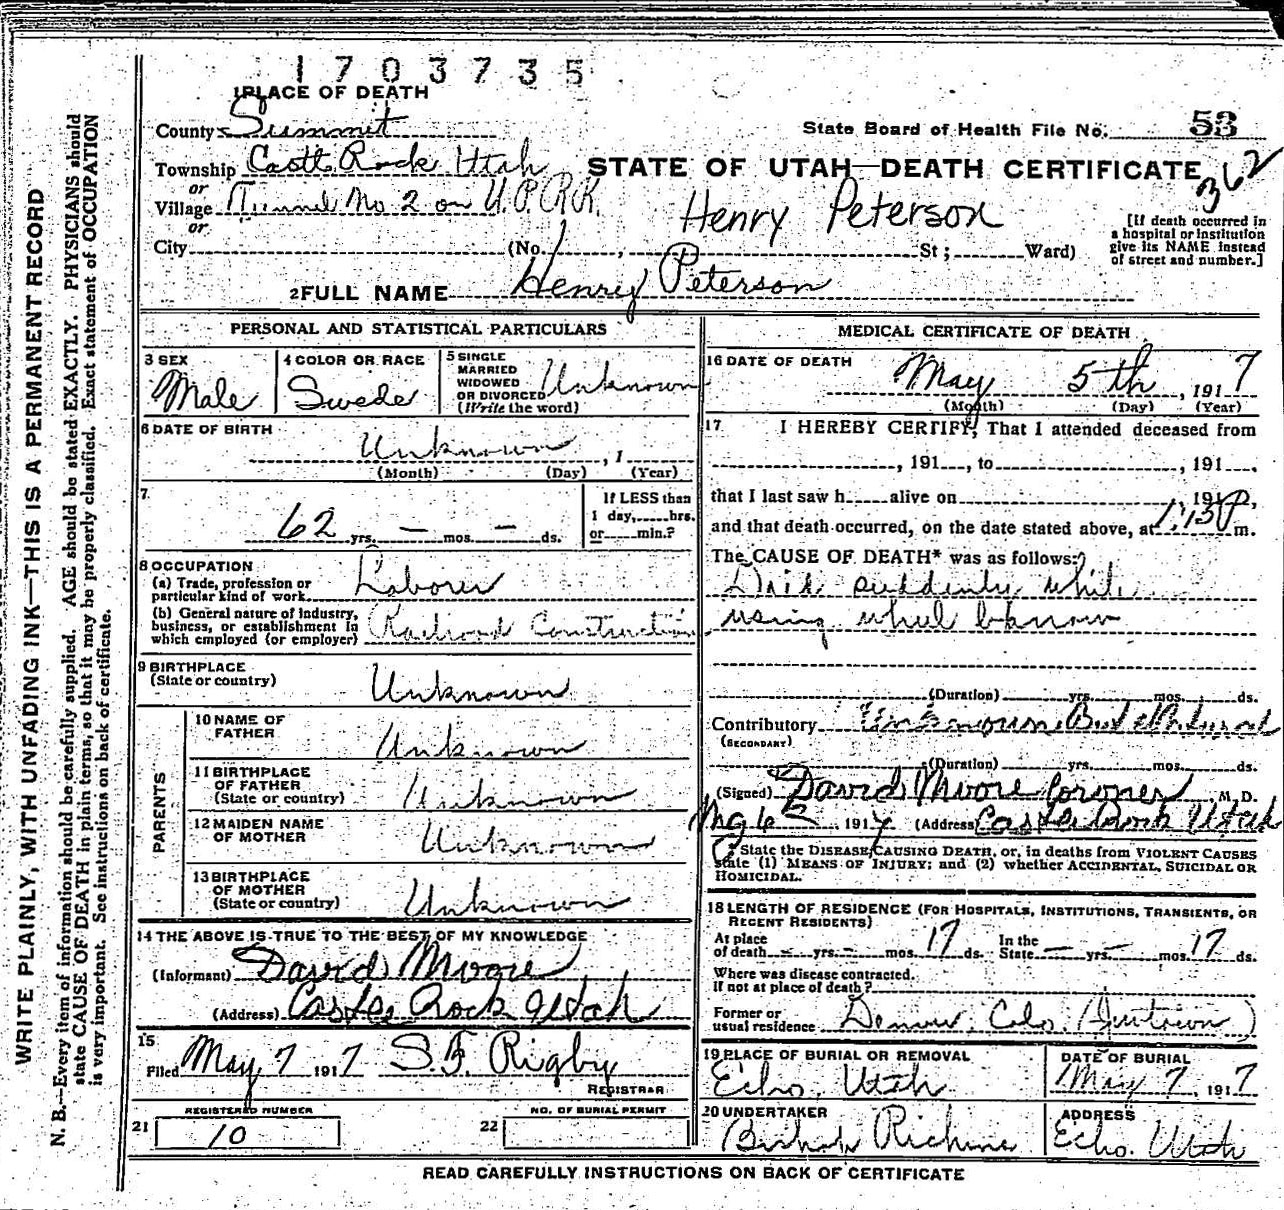 1703735
1 PLACE OF DEATH
County Summit
State Board of Health File No. 53
362
Township Castle Rock Utah
STATE OF UTAH—DEATH CERTIFICATE
or
Village Tunnel No 2 on U.P.R.R.
Henry Peterson
or
City (No. , St; Ward)
[If death occurred in
a hospital or institution
give its NAME instead
of street and number.]
2 FULL NAME Henry Peterson
PERSONAL AND STATISTICAL PARTICULARS
3 SEX
Male
4 COLOR OR RACE
Swede
5 SINGLE
MARRIED
WIDOWED
OR DIVORCED
(Write the word)
Unknown
6 DATE OF BIRTH
Unknown , 1
(Month) (Day) (Year)
7
62 yrs. — mos. — ds.
If LESS than
1 day, hrs.
or min.?
8 OCCUPATION
(a) Trade, profession or
particular kind of work Laborer
(b) General nature of industry,
business, or establishment in
which employed (or employer) Railroad Construction
9 BIRTHPLACE
(State or country) Unknown
PARENTS
10 NAME OF
FATHER Unknown
11 BIRTHPLACE
OF FATHER
(State or country) Unknown
12 MAIDEN NAME
OF MOTHER Unknown
13 BIRTHPLACE
OF MOTHER
(State or country) Unknown
14 THE ABOVE IS TRUE TO THE BEST OF MY KNOWLEDGE
(Informant) David Moore
(Address) Castle Rock Utah
15
Filed May 7 1917 S. F. Rigby
REGISTRAR
21 REGISTERED NUMBER
10
22 NO. OF BURIAL PERMIT
MEDICAL CERTIFICATE OF DEATH
16 DATE OF DEATH
May 5th , 1917
(Month) (Day) (Year)
17 I HEREBY CERTIFY, That I attended deceased from
, 191 , to , 191 ,
that I last saw h alive on , 191 ,
and that death occurred, on the date stated above, at 1:15 P m.
The CAUSE OF DEATH* was as follows:
Died suddenly while
using wheel
(Duration) yrs. mos. ds.
Contributory Unknown But
(SECONDARY)
(Duration) yrs. mos. ds.
(Signed) David Moore Coroner M. D.
6 1917 (Address) Castle Rock Utah
* State the DISEASE CAUSING DEATH, or, in deaths from VIOLENT CAUSES
state (1) MEANS OF INJURY; and (2) whether ACCIDENTAL, SUICIDAL OR
HOMICIDAL.
18 LENGTH OF RESIDENCE (FOR HOSPITALS, INSTITUTIONS, TRANSIENTS, OR
RECENT RESIDENTS)
At place
of death — yrs. — mos. 17 ds. In the
State — yrs. — mos. 17 ds.
Where was disease contracted,
if not at place of death?
Former or
usual residence Denver, Colo.
19 PLACE OF BURIAL OR REMOVAL
Echo, Utah
DATE OF BURIAL
May 7, 1917
20 UNDERTAKER
Bishop Richins
ADDRESS
Echo. Utah
READ CAREFULLY INSTRUCTIONS ON BACK OF CERTIFICATE
WRITE PLAINLY, WITH UNFADING INK—THIS IS A PERMANENT RECORD
N. B.—Every item of information should be carefully supplied. AGE should be stated EXACTLY. PHYSICIANS should
state CAUSE OF DEATH in plain terms, so that it may be properly classified. Exact statement of OCCUPATION
is very important. See instructions on back of certificate.